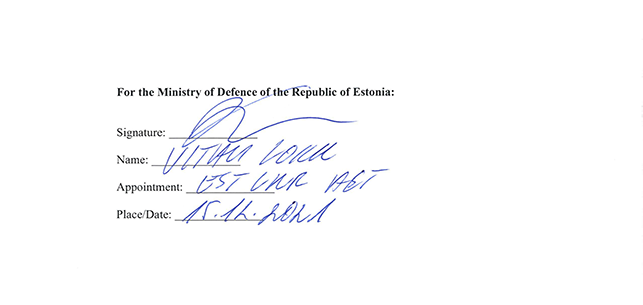 For the Ministry of Defence of the Republic of Estonia:
Signature:
Name:
Appointment: EST
Place/Date: 15.12.2021